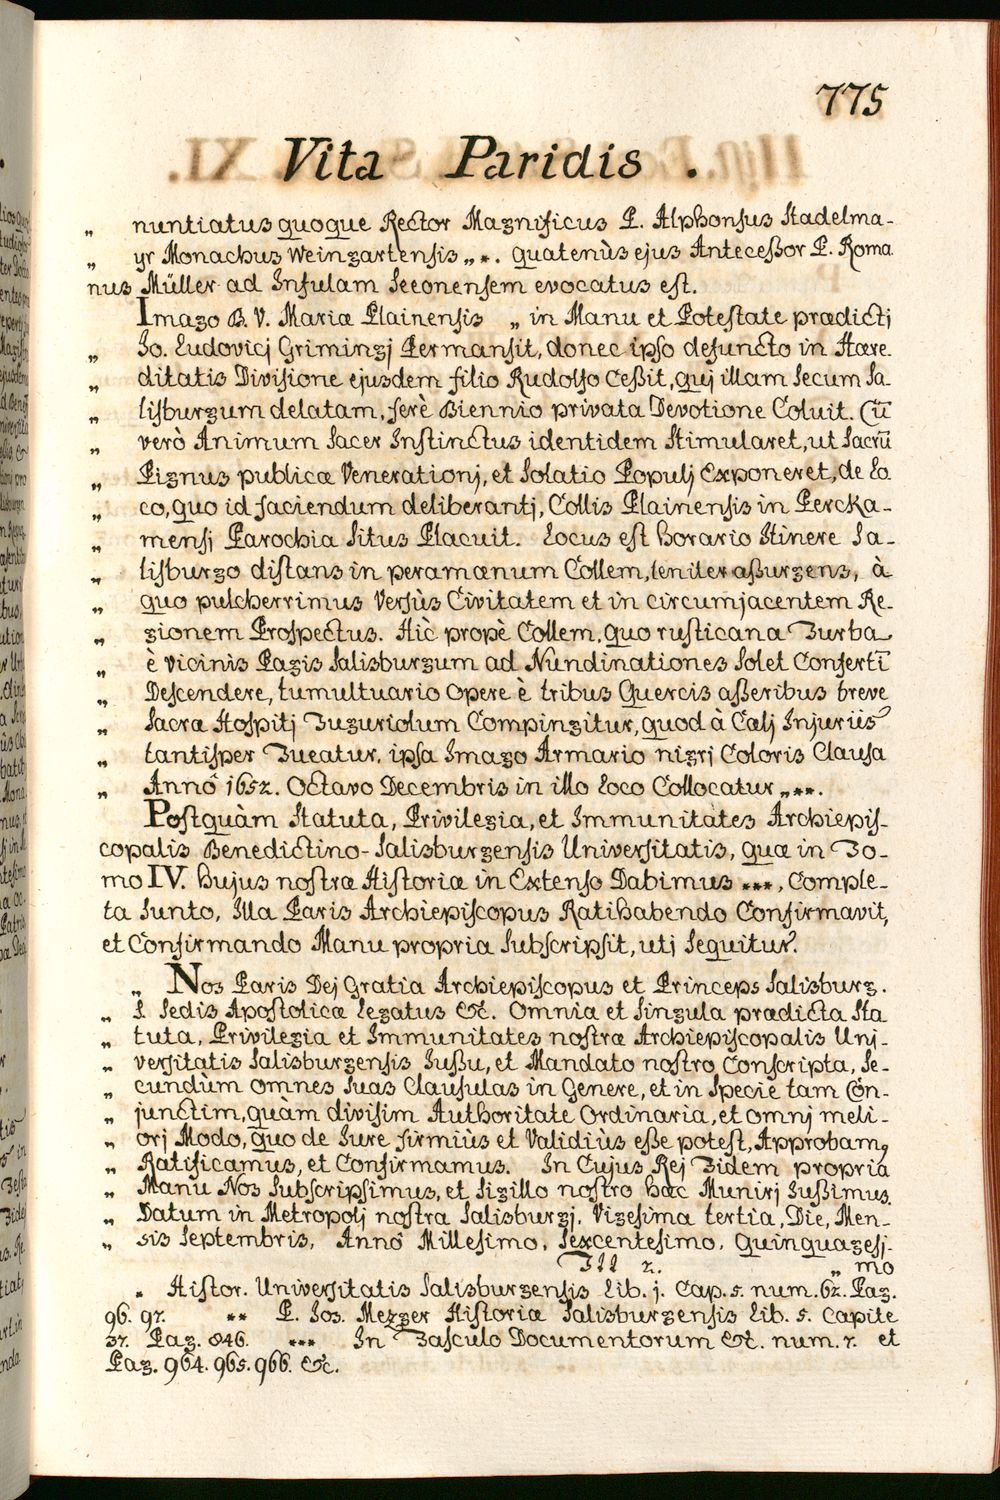 775
Vita Paridis.
„ nuntiatus quoque Rector Magnificus P. Alphonsus Stadelma-
„ yr Monachus Weingartensis „*. quatenùs ejus Antecessor P. Roma
nus Müller ad Insulam Seeonensem evocatus est.
Imago B. V. Mariæ Plainensis „ in Manu et Potestate prædictj
„ Jo. Ludovicj Grimingj Permansit, donec ipso defuncto in Hære-
„ ditatis Divisione ejusdem filio Rudolfo Cessit, quj illam Secum Sa-
„ lisburgum delatam, ferè Biennio privata Devotione Coluit. Cũ
„ verò Animum Sacer Instinctus identidem Stimularet, ut Sacrũ
„ Pignus publicæ Venerationj, et Solatio Populj Exponeret, de Lo
„ co, quo id faciendum deliberantj, Collis Plainensis in Percka-
„ mensj Parochia Situs Placuit. Locus est horario Itinere Sa-
„ lisburgo distans in peramænum Collem, leniter assurgens, à
„ quo pulcherrimus Versùs Civitatem et in circumjacentem Re-
„ gionem Prospectus. Hîc propè Collem, quo rusticana Turba
„ è vicinis Pagis Salisburgum ad Nundinationes Solet Confertĩ
„ Descendere, tumultuario Opere è tribus Quercis asseribus breve
„ Sacræ Hospitj Tuguriolum Compingitur, quod à Cælj Injuriis
„ tantisper Tueatur, ipsa Imago Armario nigrj Coloris Clausa
„ Annô 1652. Octavo Decembris in illo Loco Collocatur „**.
Postquàm Statuta, Privilegia, et Immunitates Archiepis-
copalis Benedictino-Salisburgensis Universitatis, quæ in To-
mo IV. hujus nostræ Historiæ in Extenso Dabimus ***, Comple-
ta Sunto, Illa Paris Archiepiscopus Ratihabendo Confirmavit,
et Confirmando Manu propria Subscripsit, utj Sequitur.
„ Nos Paris Dej Gratia Archiepiscopus et Princeps Salisburg.
„ S. Sedis Apostolicæ Legatus &c. Omnia et Singula prædicta Sta
„ tuta, Privilegia et Immunitates nostræ Archiepiscopalis Unj-
„ versitatis Salisburgensis Jussu, et Mandato nostro Conscripta, Se-
„ cundùm omnes Suas Clausulas in Genere, et in Specie tam Con-
„ junctim, quàm divisim Authoritate Ordinaria, et omnj meli-
„ orj Modo, quo de Jure firmiùs et Validiùs esse potest, Approbam9
„ Ratificamus, et Confirmamus. In Cujus Rej Fidem propria
„ Manu Nos Subscripsimus, et Sigillo nostro hæc Munirj Jussimus.
„ Datum in Metropolj nostra Salisburgj. Vigesima tertia, Die, Men-
„ sis Septembris, Annô Millesimo, Sexcentesimo, Quinquagesj-
Fff 2. „ mo
* Histor. Universitatis Salisburgensis Lib. j. Cap. 5. num. 62. Pag.
96. 97. ** P. Jos. Mezger Historiæ Salisburgensis Lib. 5. Capite
37. Pag. 846. *** In Fasculo Documentorum &c. num. 7. et
Pag. 964. 965. 966. &c.